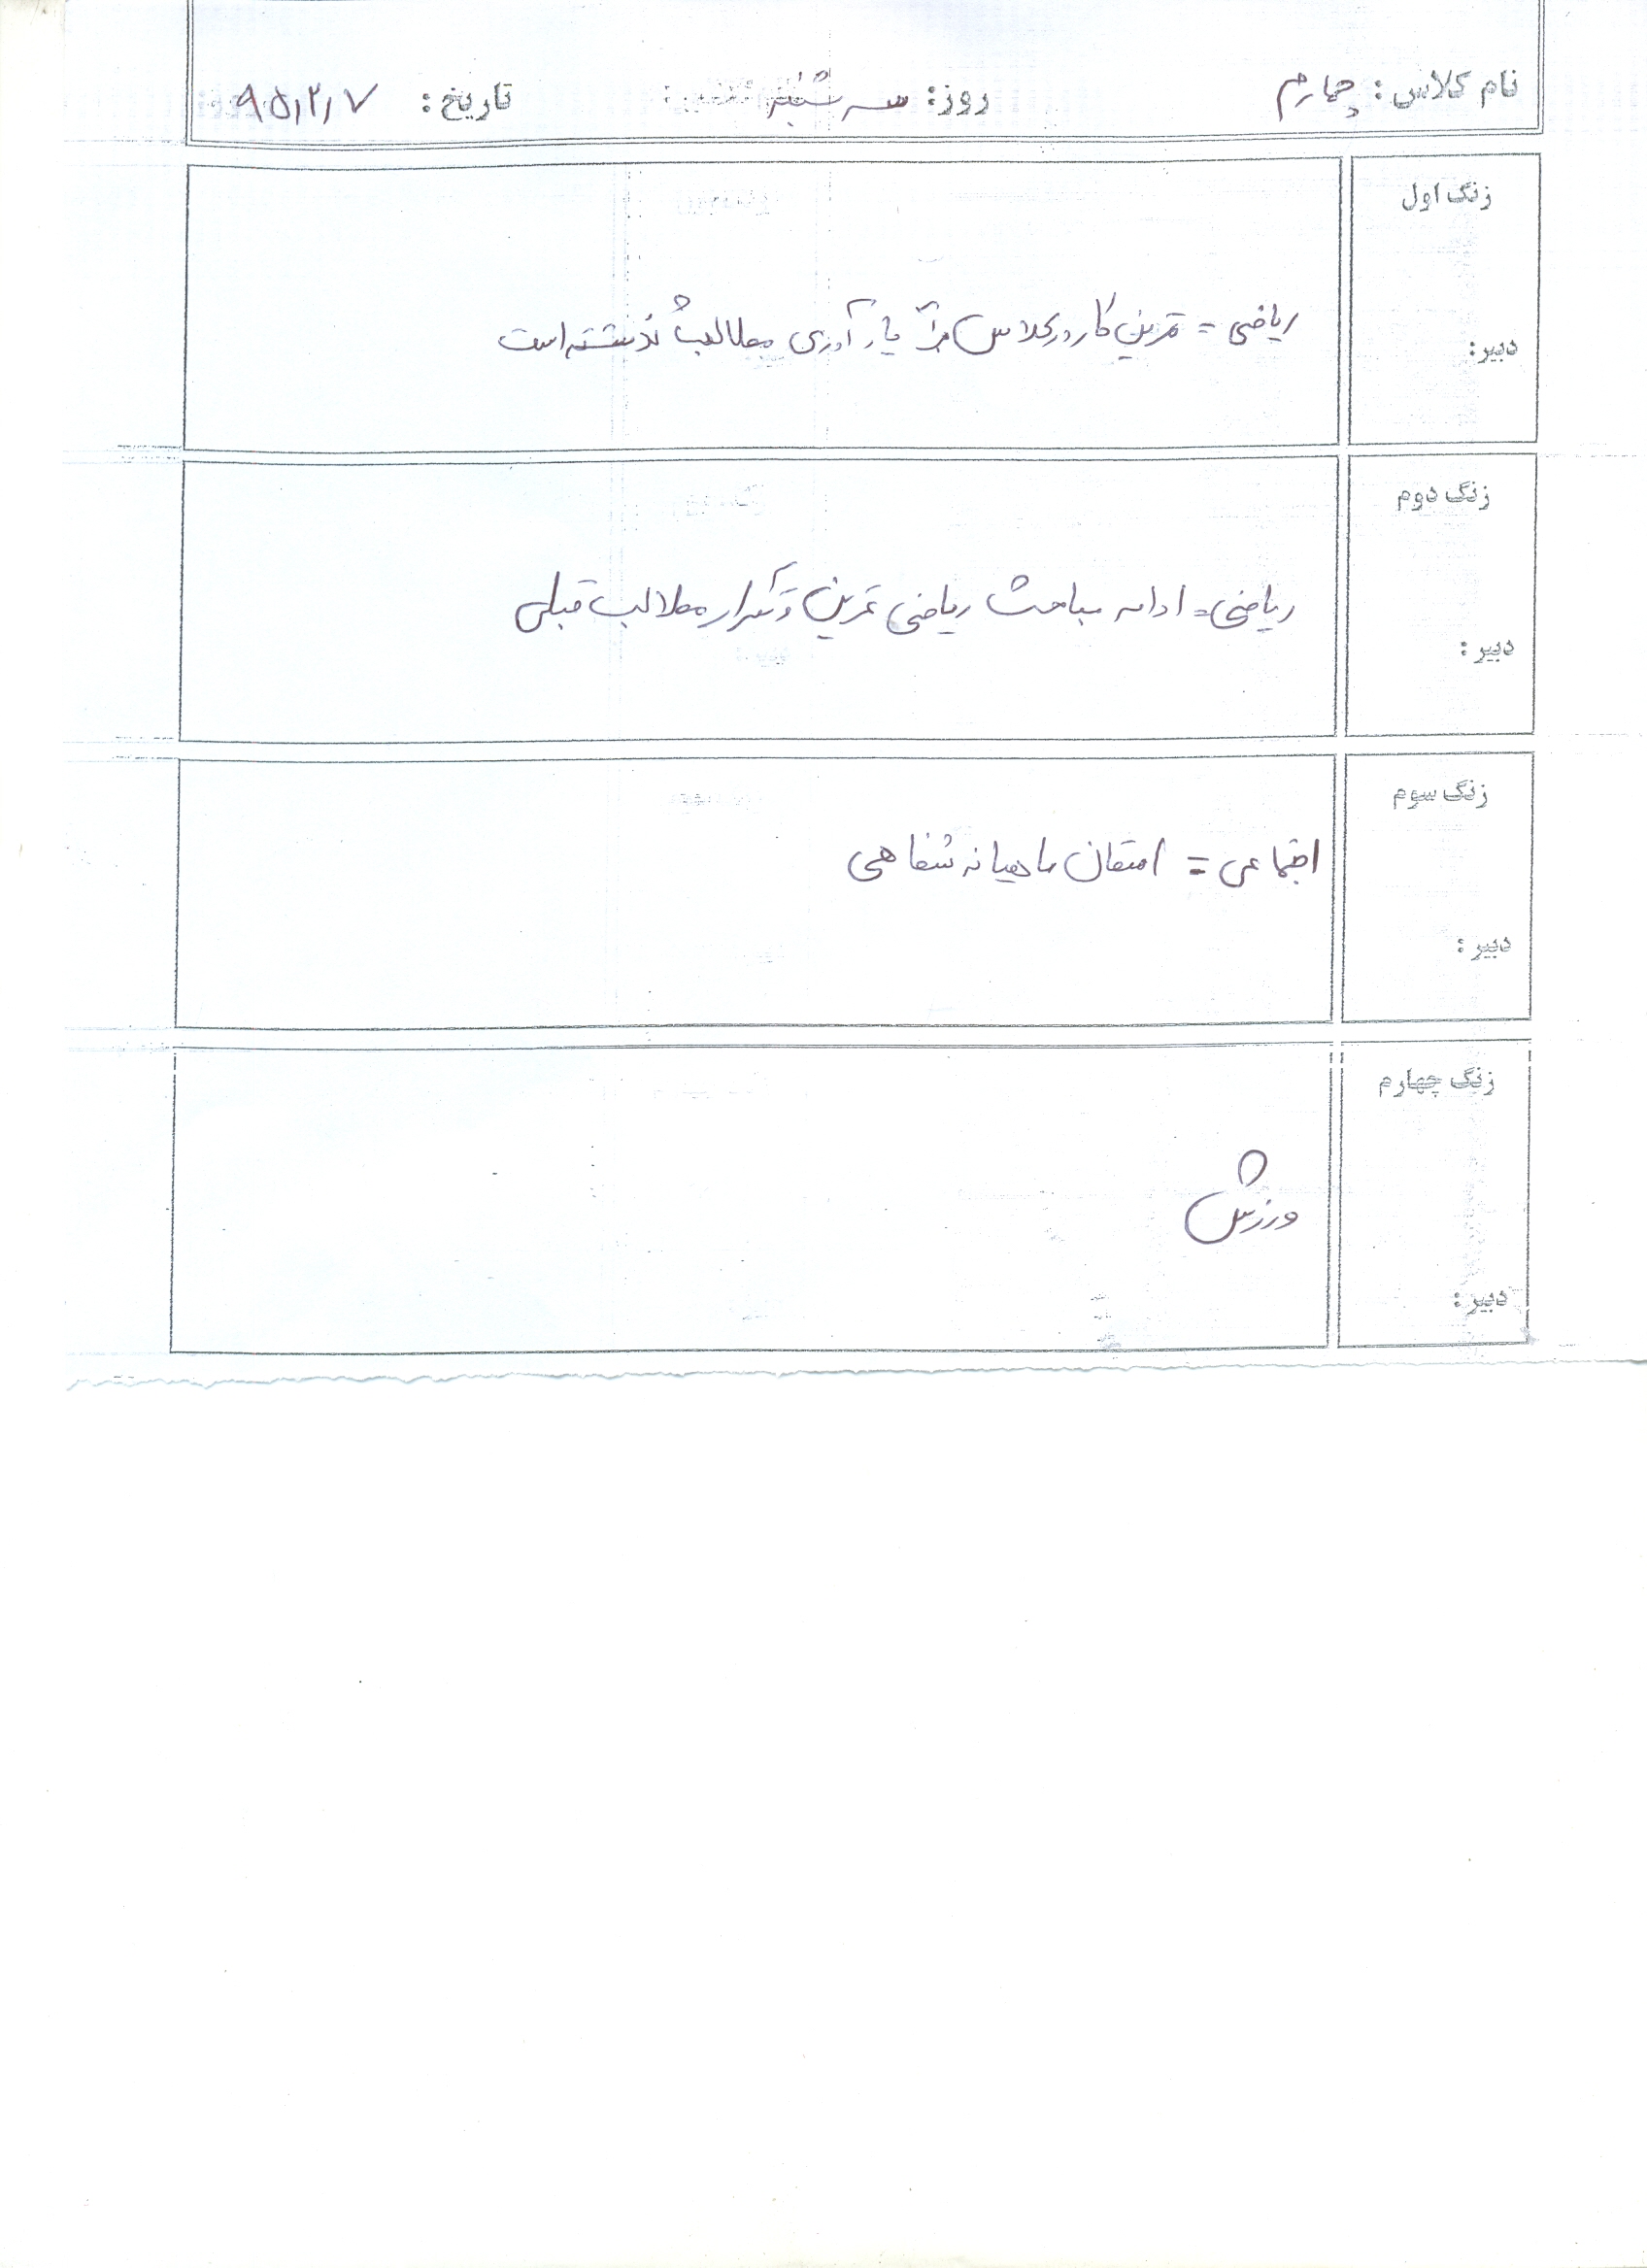 نام کلاس: چهارم روز: سه شنبه تاریخ: ۹۵,۲,۷
زنگ اول
ریاضی = تمرین کار در کلاس برای یادآوری مطالب گذشته است
دبیر:
زنگ دوم
ریاضی = ادامه مباحث ریاضی تمرین و تکرار مطالب قبلی
دبیر:
زنگ سوم
اجتماعی = امتحان ماهیانه شفاهی
دبیر:
زنگ چهارم
ورزش
دبیر: